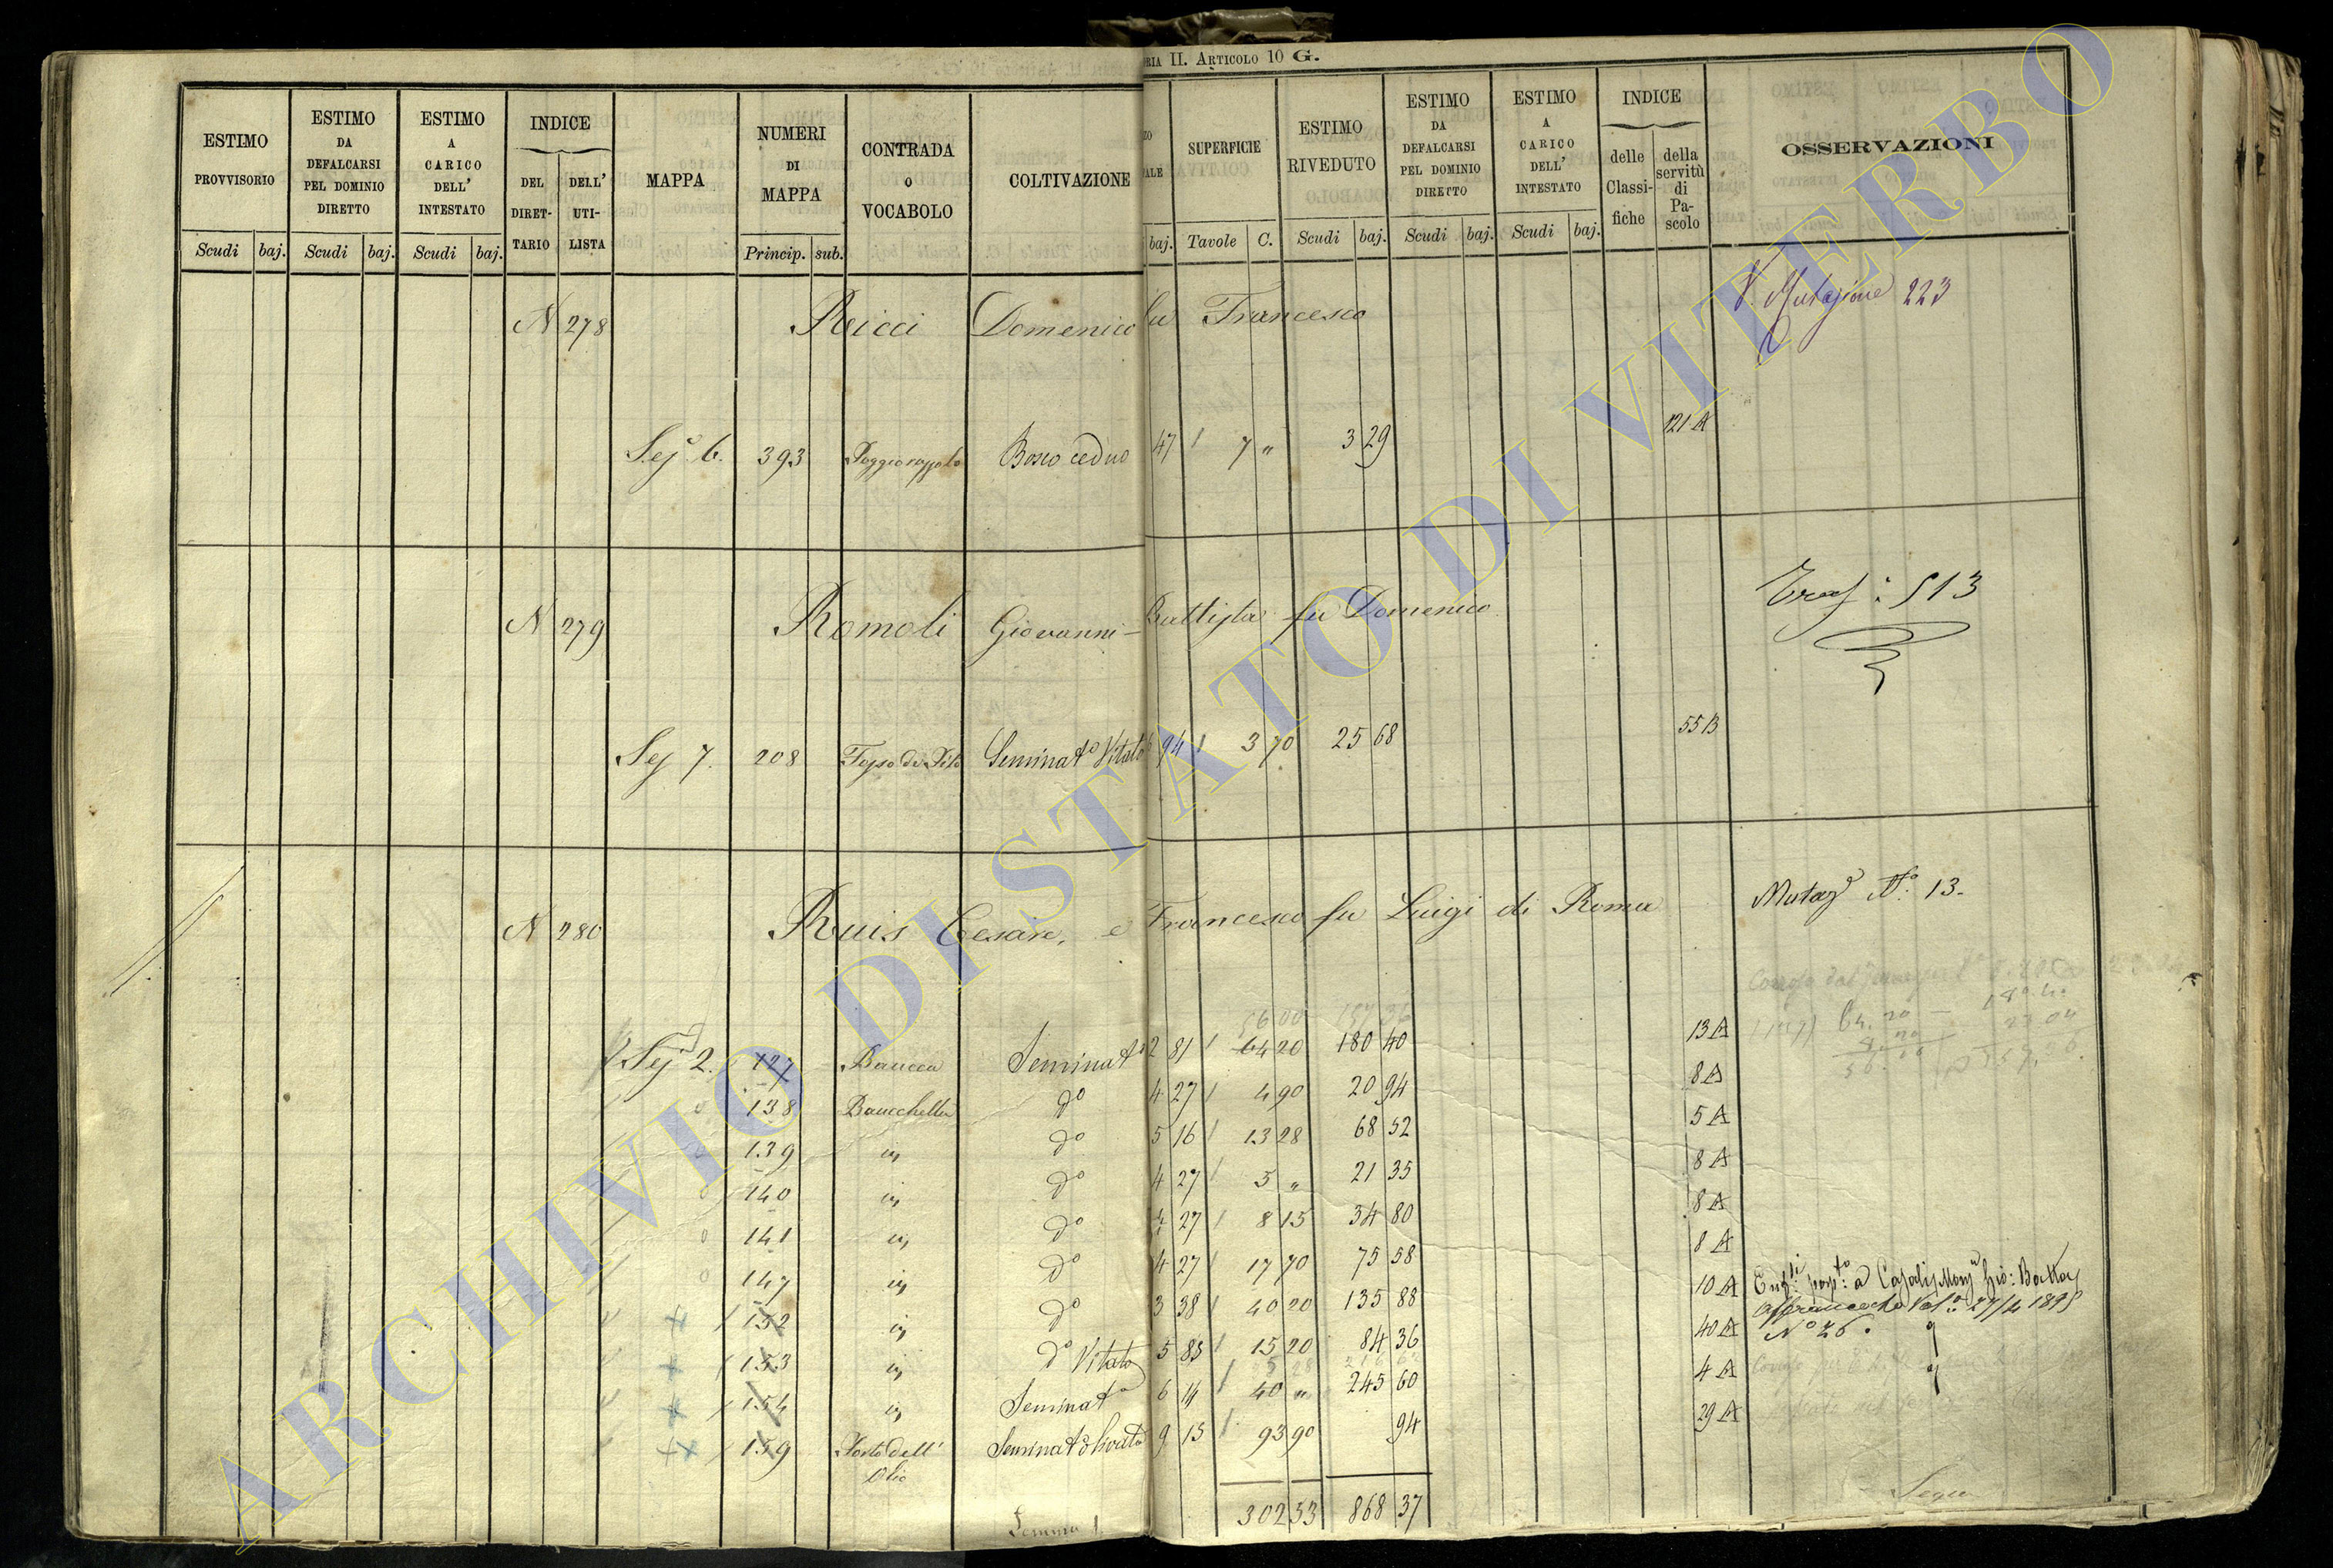 RIA II. ARTICOLO 10 G.
ESTIMO PROVVISORIO | ESTIMO DA DEFALCARSI PEL DOMINIO DIRETTO | ESTIMO A CARICO DELL' INTESTATO | INDICE DEL DIRETTARIO | DELL' UTILISTA | MAPPA | NUMERI DI MAPPA | CONTRADA O VOCABOLO | COLTIVAZIONE | SUPERFICIE | ESTIMO RIVEDUTO | ESTIMO DA DEFALCARSI PEL DOMINIO DIRETTO | ESTIMO A CARICO DELL' INTESTATO | INDICE delle Classifiche | della servitù di Pascolo | OSSERVAZIONI
Scudi | baj. | Scudi | baj. | Scudi | baj. | Princip. | sub. | baj. | Tavole | C. | Scudi | baj. | Scudi | baj. | Scudi | baj.
N 278 Ricci Domenico fu Francesco V. Mutazione 223
Sez. 6. 393 Bosco ceduo 47 7 " 3 29 121 A
N 279 Romoli Giovanni-Battista fu Domenico 513
Sez 7. 208 Seminato Vitato 94 3 70 25 68 55 B
N 280 Ruis Cesare, e Francesco fu Luigi di Roma Mutaz. N.° 13.
56 00 157 36
Sez 2. 127 Baucca Seminato 2 81 64 20 180 40 13 A
138 Baucchella do 4 27 4 90 20 94 8 A
139 do 5 16 13 28 68 52 5 A
140 do 4 27 5 " 21 35 8 A
141 do 4 27 8 15 34 80 8 A
147 do 4 27 17 70 75 58 8 A
152 do 3 38 40 20 135 88 10 A
153 do Vitato 5 83 15 20 84 36 40 A N° 26.
154 Seminato 6 14 40 " 245 60 4 A
159 dell' Olio Seminato Olivato 9 13 93 90 94 29 A
302 53 868 37
Somma
Segue
ARCHIVIO DI STATO DI VITERBO